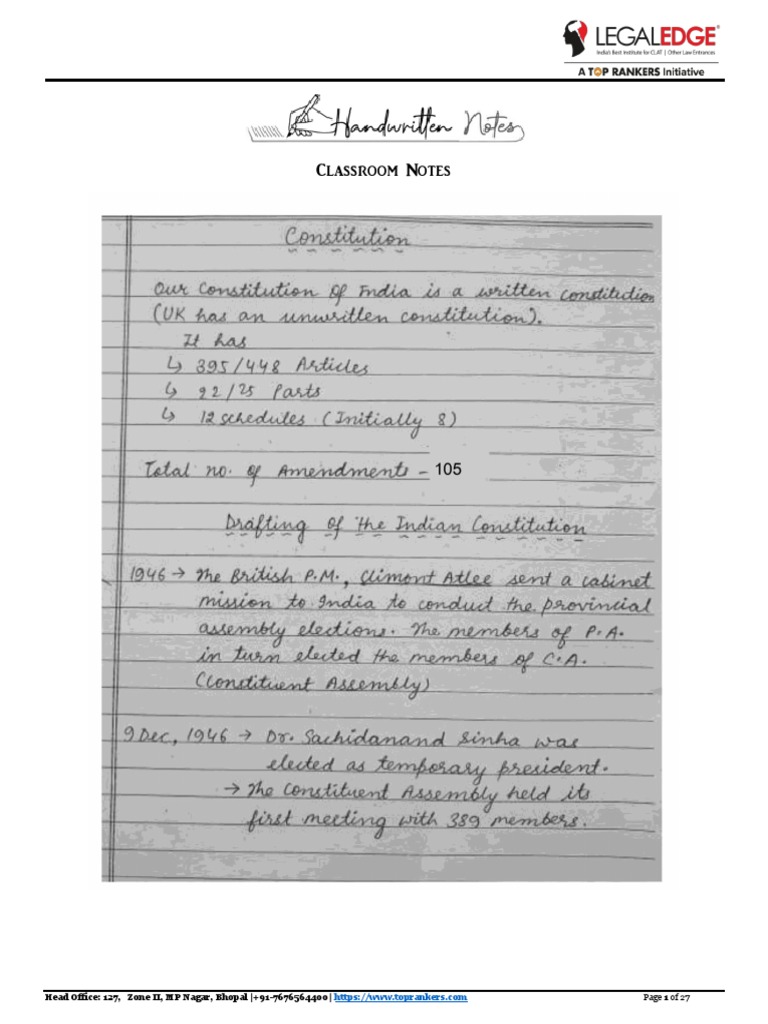 LEGALEDGE
India's Best Institute for CLAT | Other Law Entrances
A TOP RANKERS Initiative
Handwritten Notes
CLASSROOM NOTES
Constitution
Our Constitution of India is a written constitution
(UK has an unwritten constitution).
It has
↳ 395/448 Articles
↳ 22/25 Parts
↳ 12 schedules (Initially 8)
Total no. of Amendments - 105
Drafting of the Indian Constitution
1946 → The British P.M., Climont Atlee sent a cabinet
mission to India to conduct the provincial
assembly elections. The members of P.A.
in turn elected the members of C.A.
(Constituent Assembly)
9 Dec, 1946 → Dr. Sachidanand Sinha was
elected as temporary president.
→ The Constituent Assembly held its
first meeting with 389 members.
Head Office: 127, Zone II, MP Nagar, Bhopal |+91-7676564400| https://www.toprankers.com
Page 1 of 27